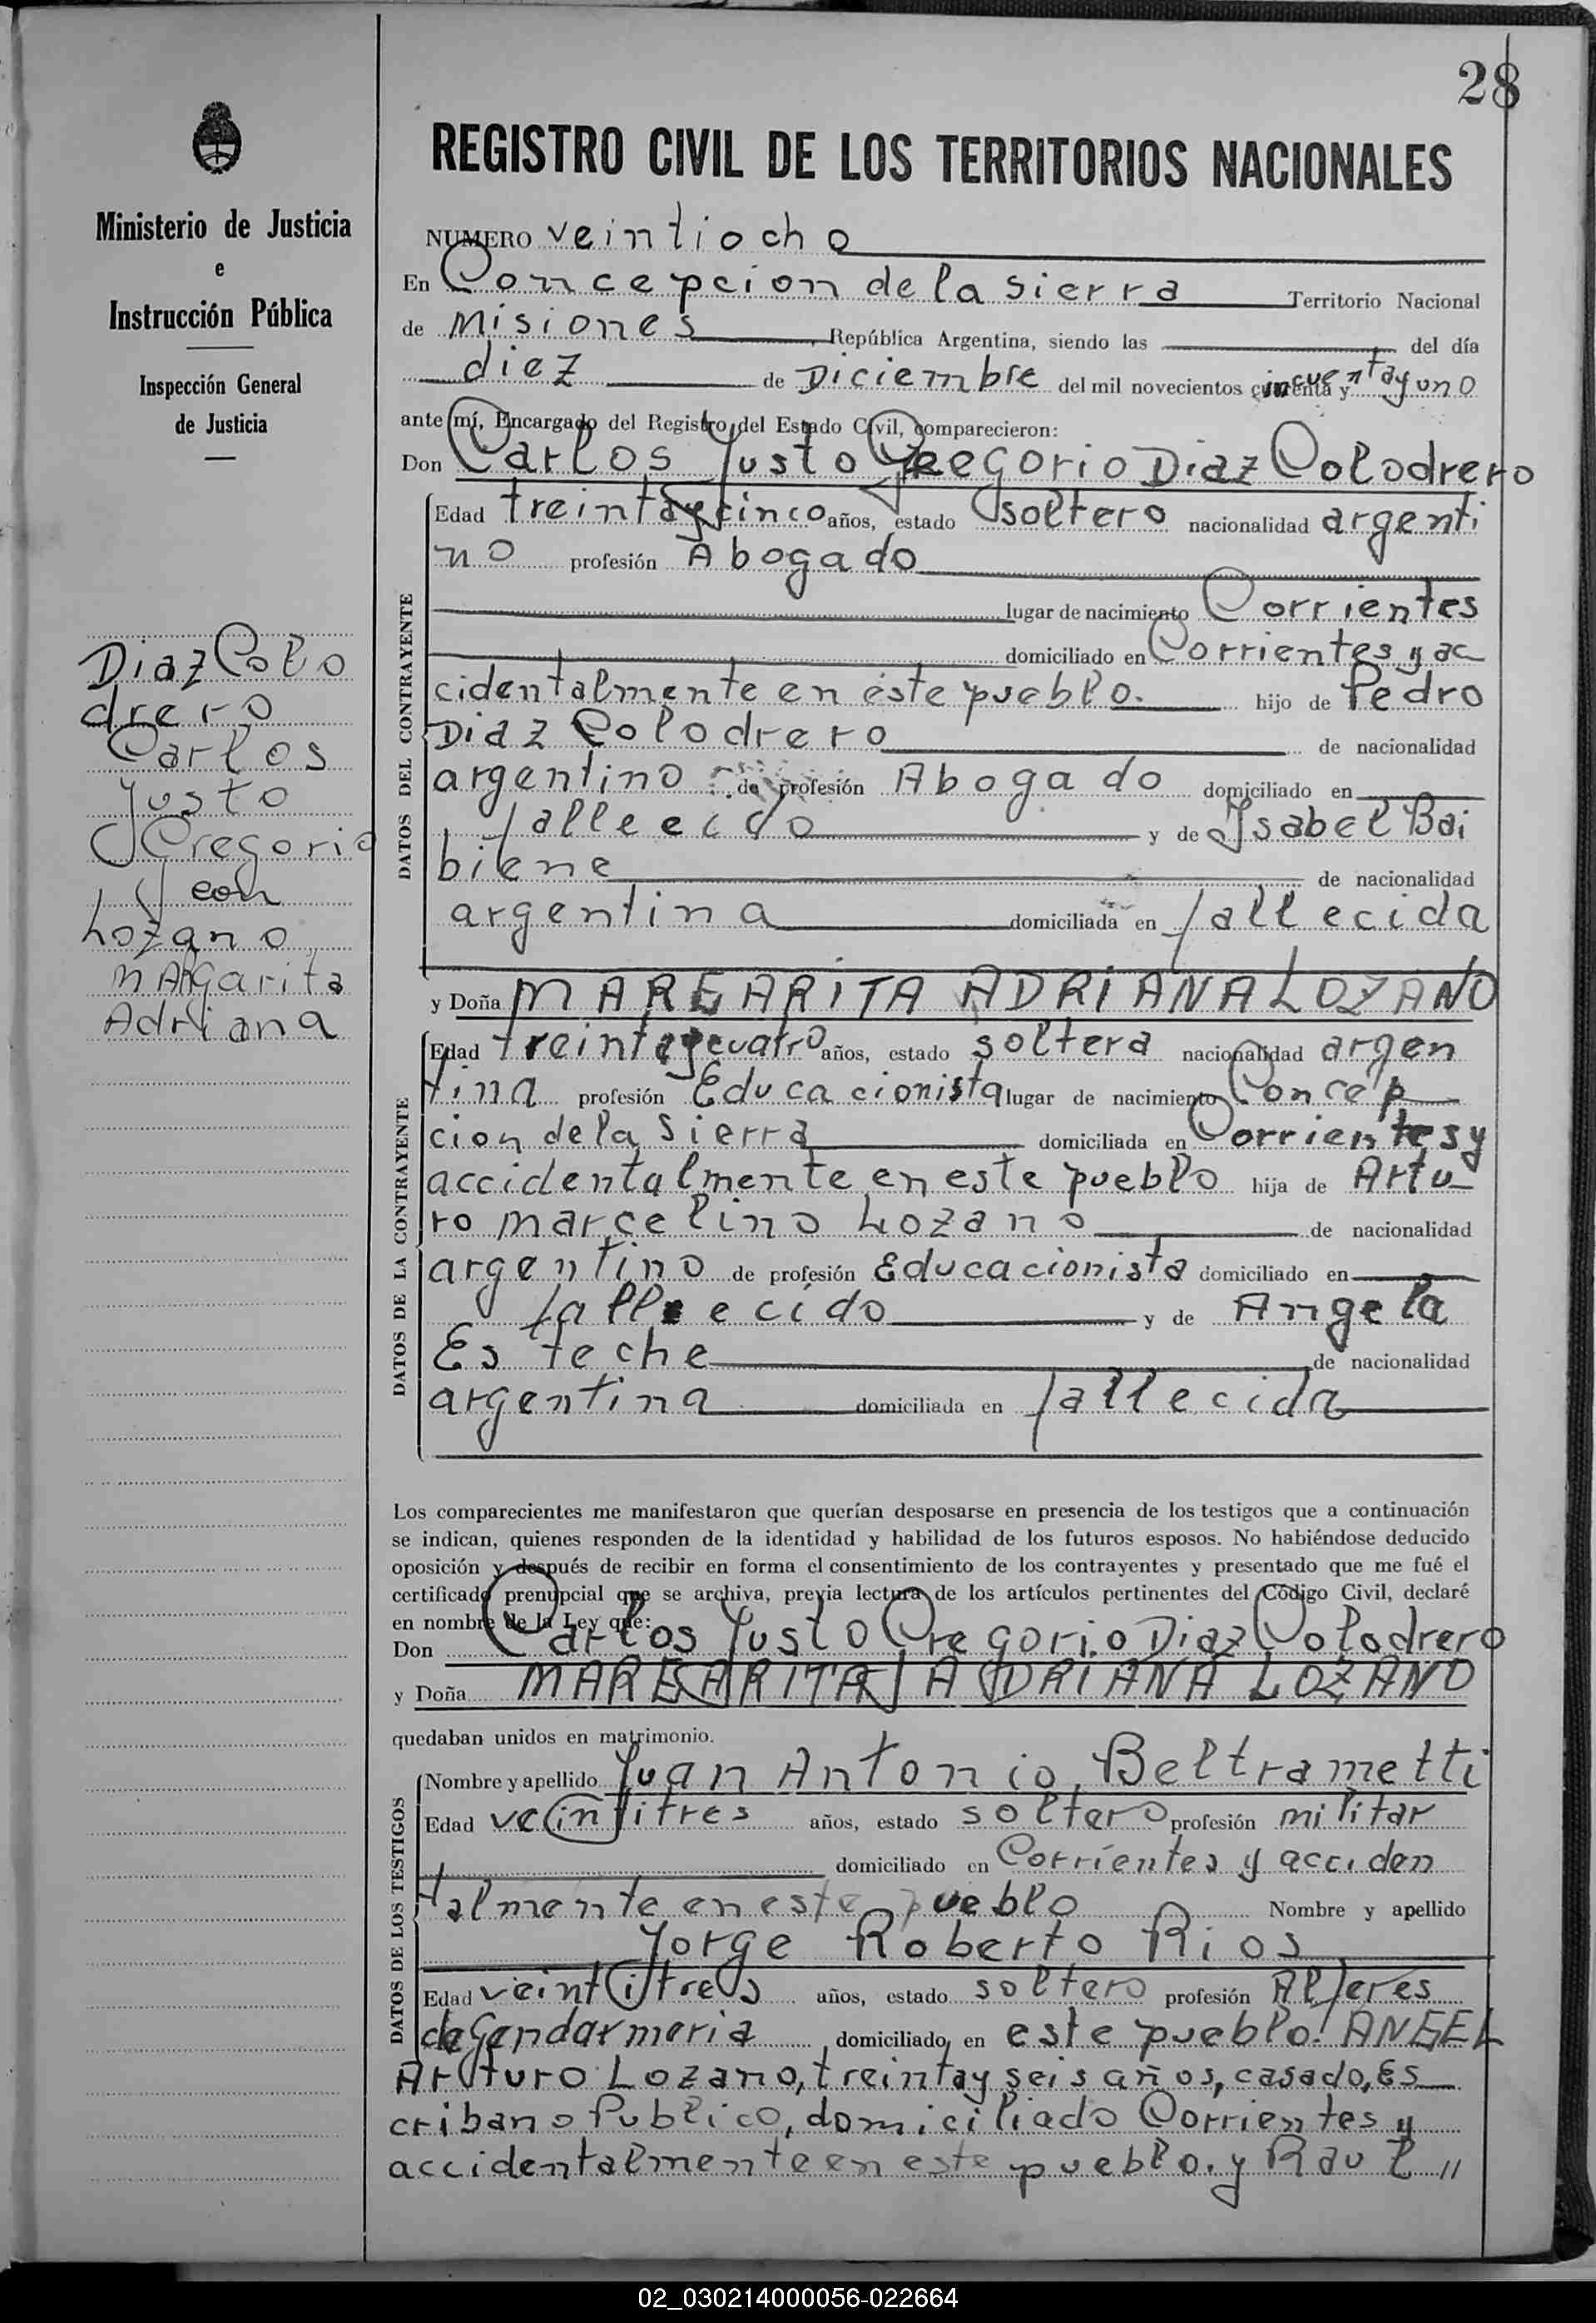 28
Ministerio de Justicia
e
Instrucción Pública
Inspección General
de Justicia
Diaz Colo
drero
Carlos
Justo
Gregorio
con
Lozano
Margarita
Adriana
REGISTRO CIVIL DE LOS TERRITORIOS NACIONALES
NUMERO veintiocho
En Concepcion de la Sierra Territorio Nacional
de Misiones, República Argentina, siendo las del día
diez de Diciembre del mil novecientos cincuenta y uno
ante mí, Encargado del Registro del Estado Civil, comparecieron:
Don Carlos Justo Gregorio Diaz Colodrero
DATOS DEL CONTRAYENTE
Edad treintaycinco años, estado soltero nacionalidad argenti
no profesión Abogado
lugar de nacimiento Corrientes
domiciliado en Corrientes y ac
cidentalmente en éste pueblo. hijo de Pedro
Diaz Colodrero de nacionalidad
argentino de profesión Abogado domiciliado en
fallecido y de Ysabel Bai
biene de nacionalidad
argentina domiciliada en fallecida
y Doña MARGARITA ADRIANA LOZANO
DATOS DE LA CONTRAYENTE
Edad treintaycuatro años, estado soltera nacionalidad argen
tina profesión Educacionista lugar de nacimiento Concep
cion de la Sierra domiciliada en Corrientes y
accidentalmente en este pueblo hija de Artu
ro Marcelino Lozano de nacionalidad
argentino de profesión Educacionista domiciliado en
fallecido y de Angela
Esteche de nacionalidad
argentina domiciliada en fallecida
Los comparecientes me manifestaron que querían desposarse en presencia de los testigos que a continuación
se indican, quienes responden de la identidad y habilidad de los futuros esposos. No habiéndose deducido
oposición y después de recibir en forma el consentimiento de los contrayentes y presentado que me fué el
certificado prenupcial que se archiva, previa lectura de los artículos pertinentes del Código Civil, declaré
en nombre de la Ley que:
Don Carlos Justo Gregorio Diaz Colodrero
y Doña MARGARITA ADRIANA LOZANO
quedaban unidos en matrimonio.
DATOS DE LOS TESTIGOS
Nombre y apellido Juan Antonio Beltrametti
Edad veintitres años, estado soltero profesión militar
domiciliado en Corrientes y acciden
talmente en este pueblo Nombre y apellido
Jorge Roberto Rios
Edad veintitres años, estado soltero profesión Alferes
de Gendarmeria domiciliado en este pueblo. ANGEL
Arturo Lozano, treintay seis años, casado, Es
cribano Publico, domiciliado Corrientes y
accidentalmente en este pueblo. y Raul "
02_030214000056-022664